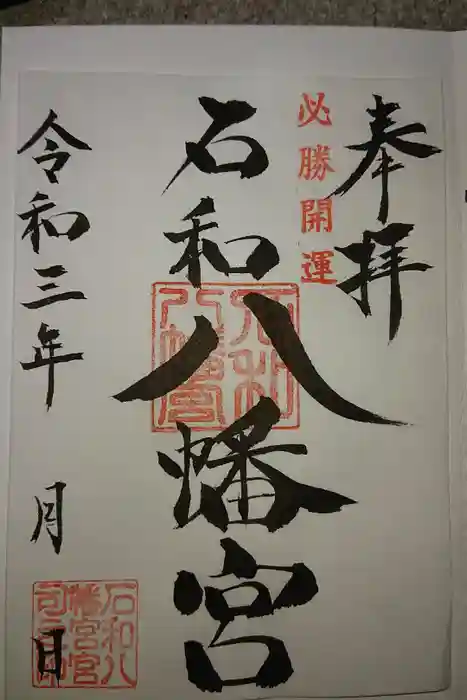 奉拝
必勝開運
石和八幡宮
石和八幡宮
令和三年 月 日
石和八幡宮宮司之印